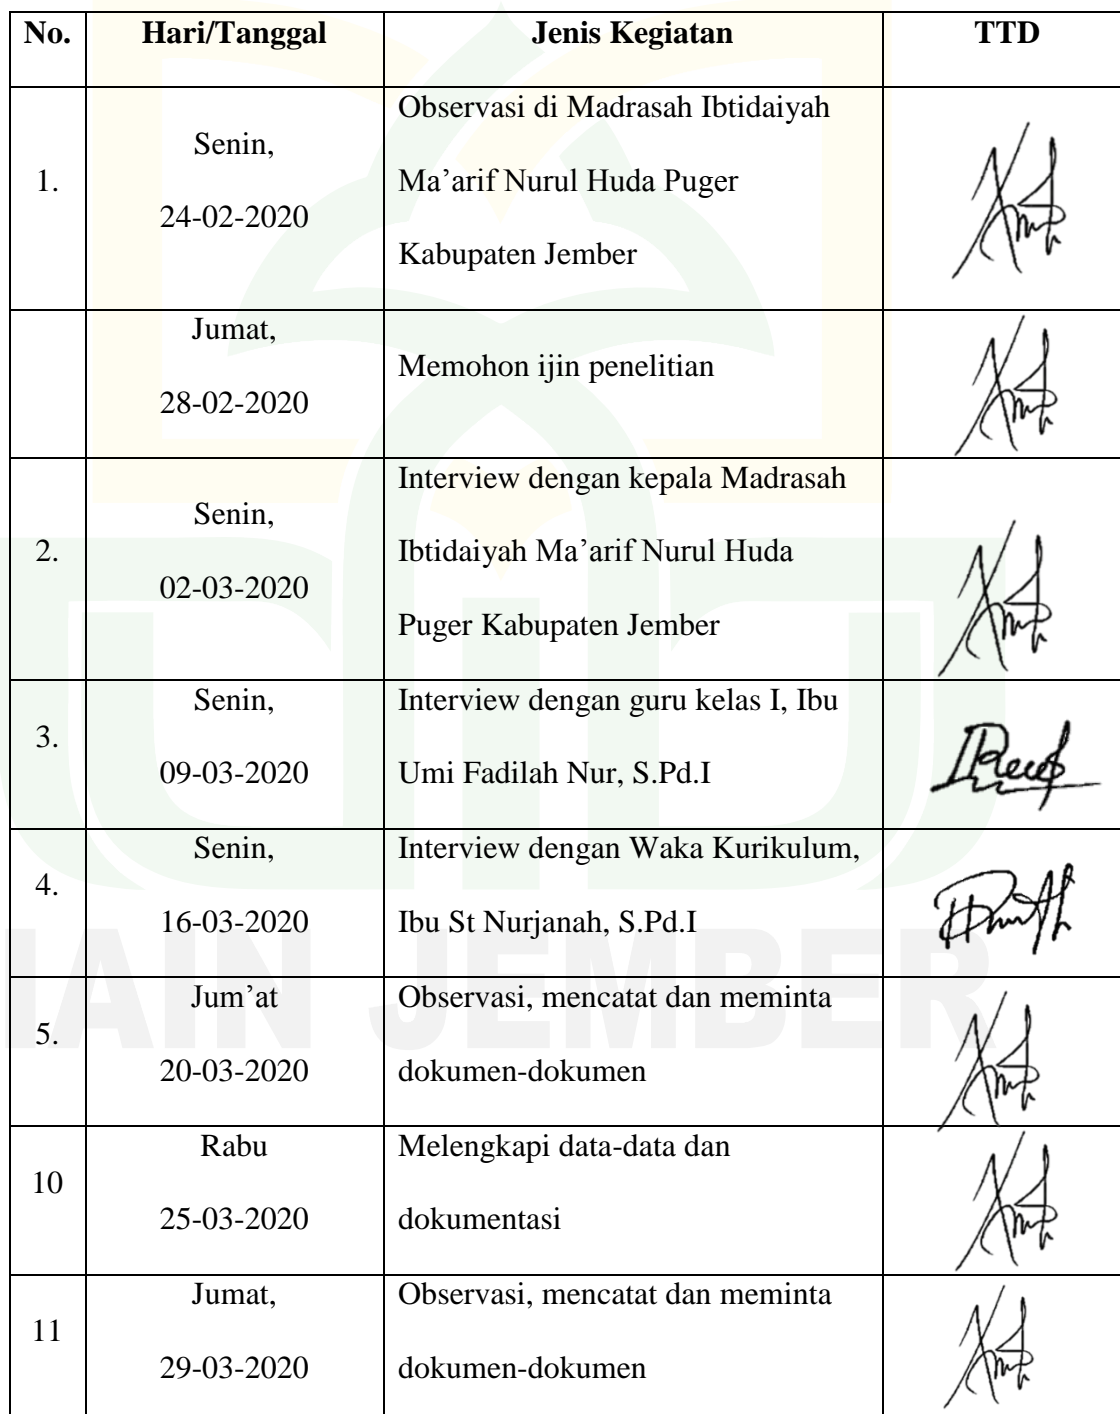 No. Hari/Tanggal Jenis Kegiatan TTD
1.
Senin,
24-02-2020
Observasi di Madrasah Ibtidaiyah
Ma’arif Nurul Huda Puger
Kabupaten Jember
Jumat,
28-02-2020
Memohon ijin penelitian
2.
Senin,
02-03-2020
Interview dengan kepala Madrasah
Ibtidaiyah Ma’arif Nurul Huda
Puger Kabupaten Jember
3.
Senin,
09-03-2020
Interview dengan guru kelas I, Ibu
Umi Fadilah Nur, S.Pd.I
4.
Senin,
16-03-2020
Interview dengan Waka Kurikulum,
Ibu St Nurjanah, S.Pd.I
5.
Jum’at
20-03-2020
Observasi, mencatat dan meminta
dokumen-dokumen
10
Rabu
25-03-2020
Melengkapi data-data dan
dokumentasi
11
Jumat,
29-03-2020
Observasi, mencatat dan meminta
dokumen-dokumen
IAIN JEMBER